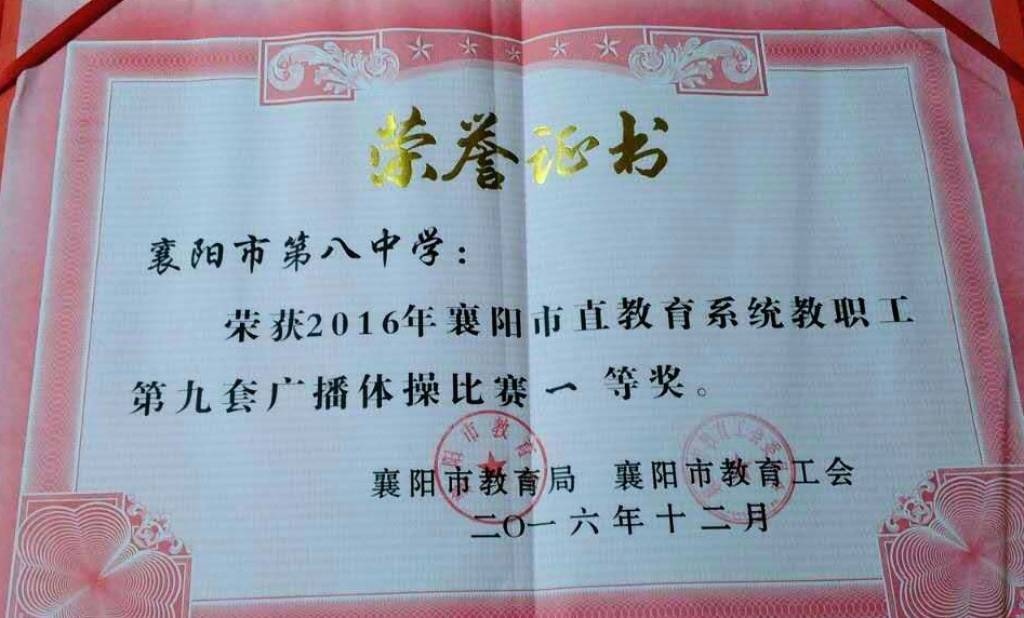 荣誉证书
襄阳市第八中学：
荣获2016年襄阳市直教育系统教职工
第九套广播体操比赛一等奖。
襄阳市教育局 襄阳市教育工会
二〇一六年十二月